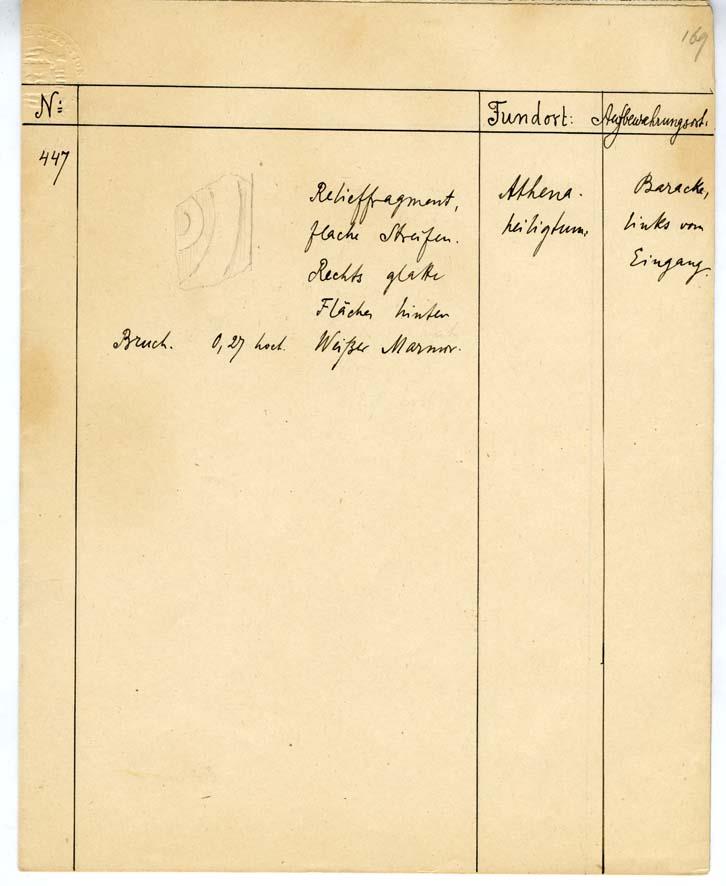 169
Nº: Fundort: Aufbewahrungsort:
447
Relieffragment, Athena- Baracke,
flache Streifen. heiligtum. links vom
Rechts glatte Eingang.
Fläche, hinten
Bruch. 0,27 hoch. Weißer Marmor.